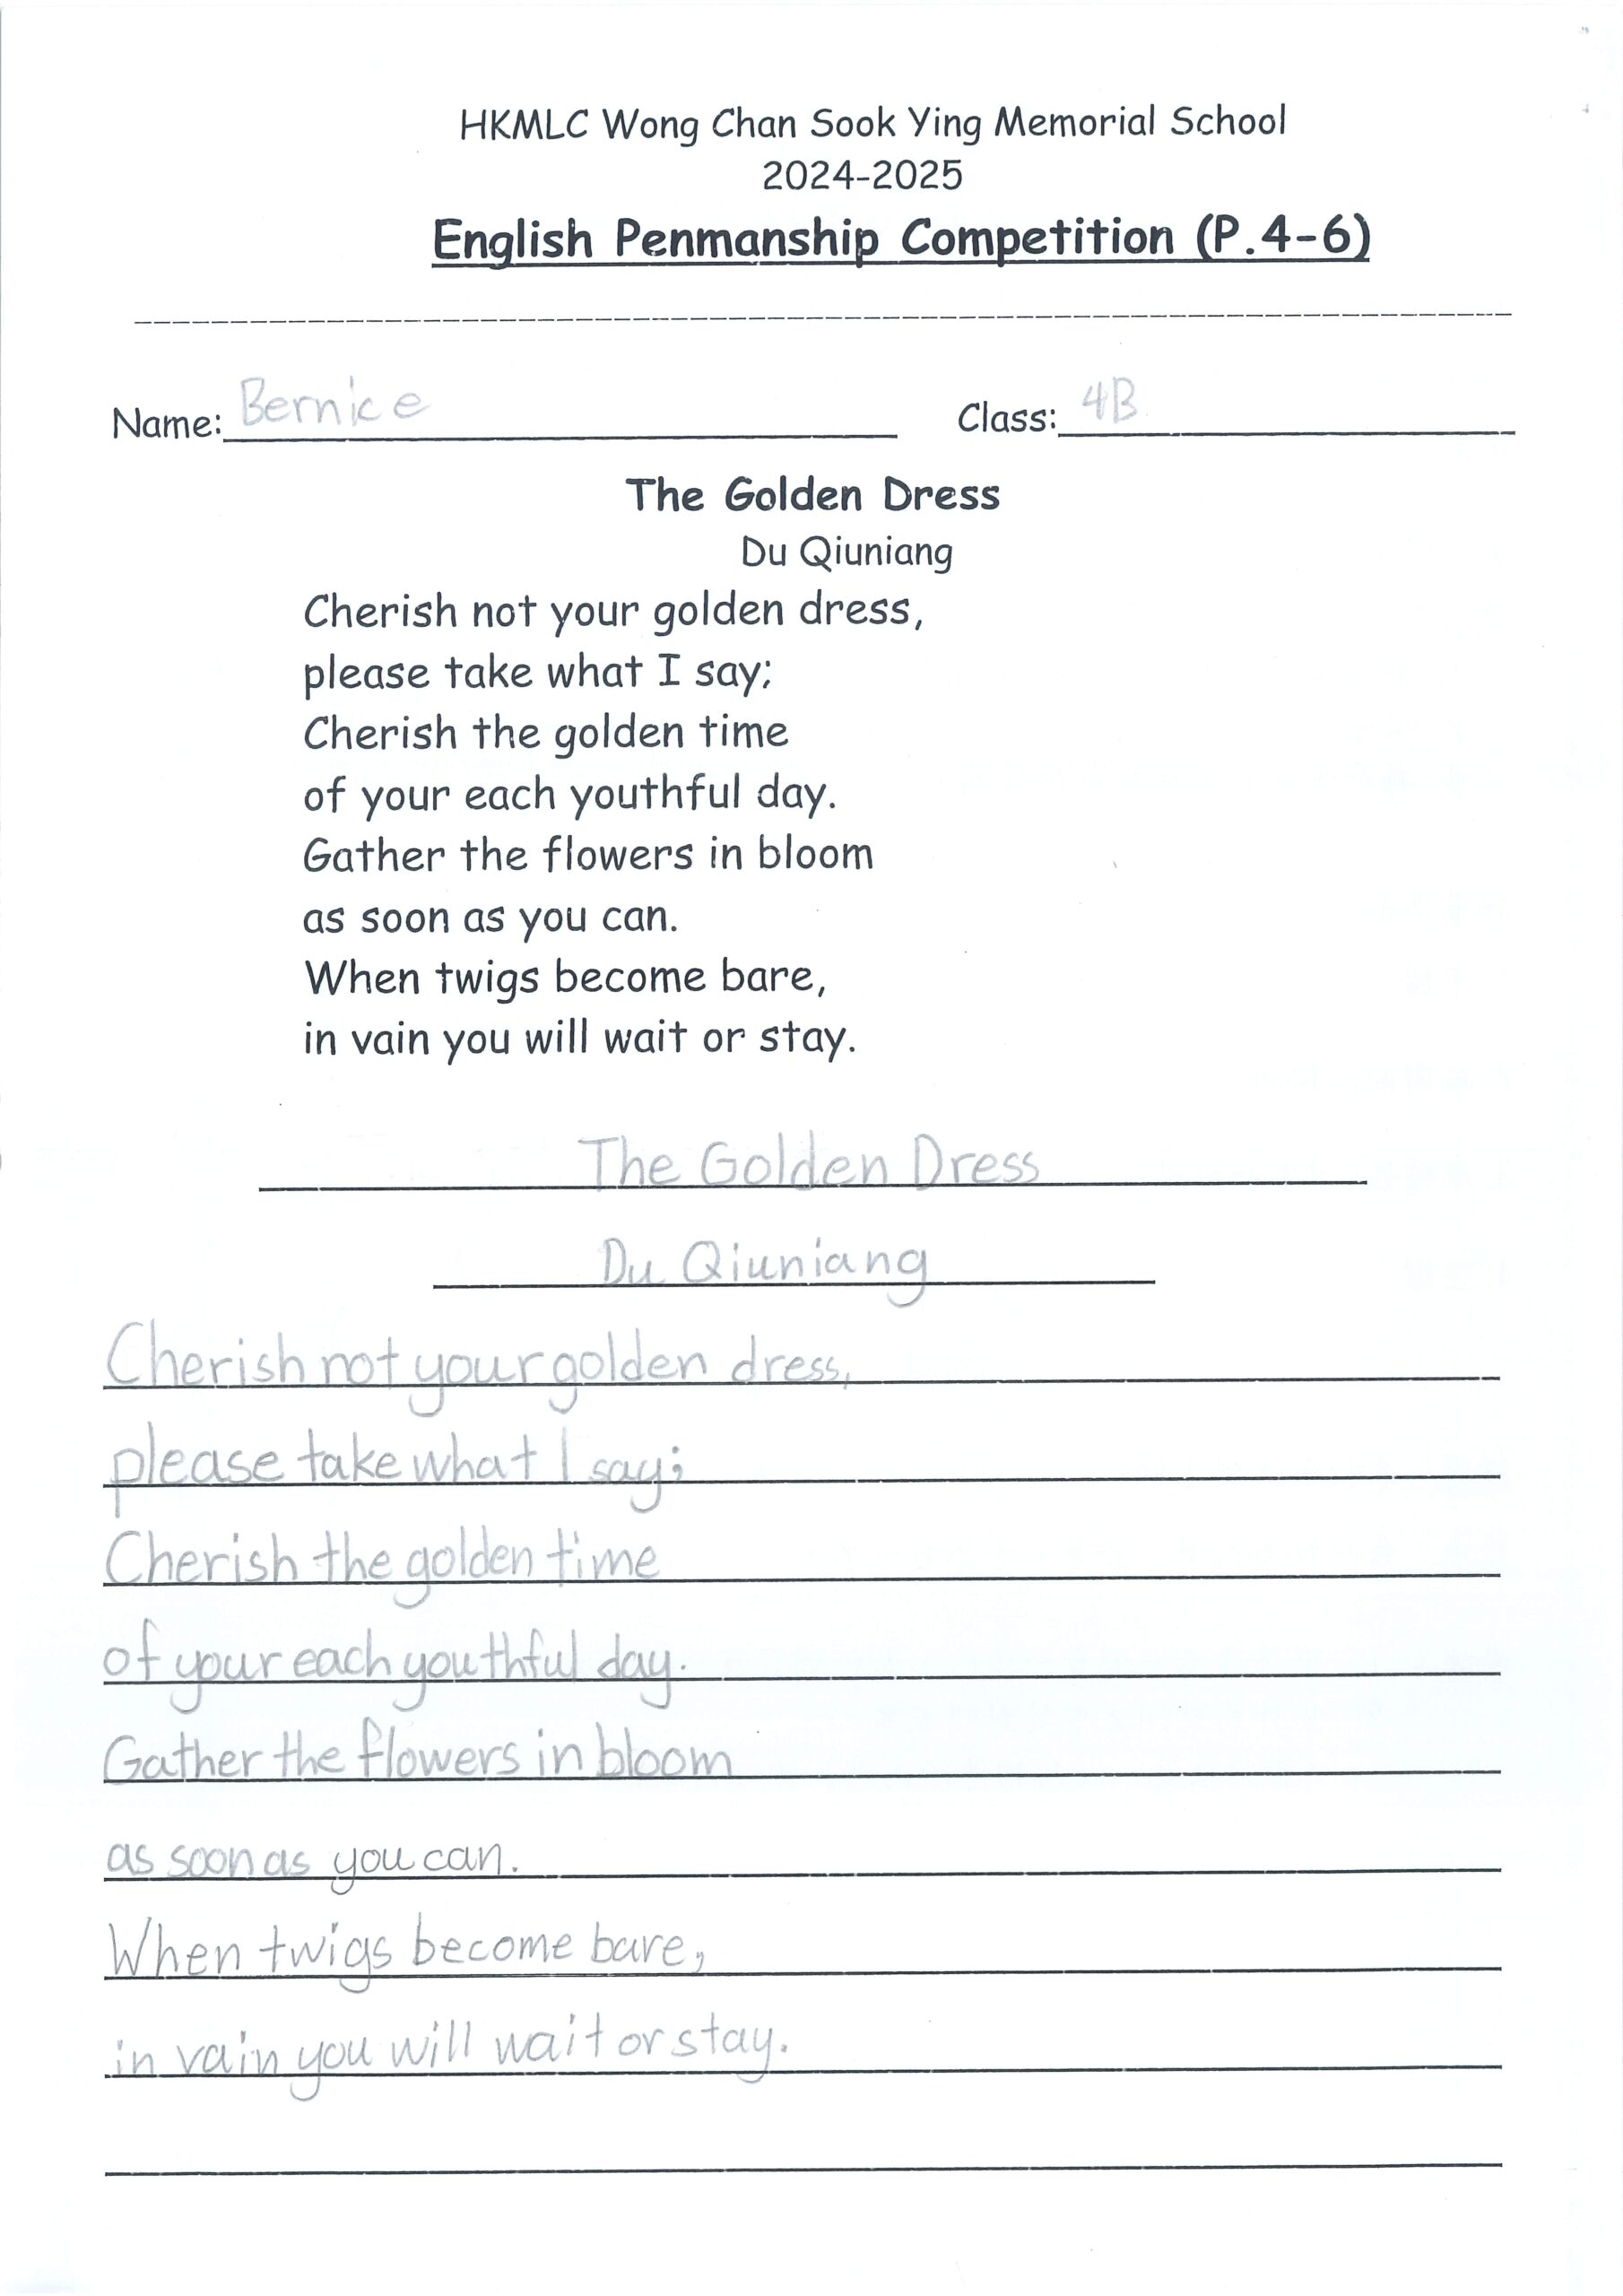 HKMLC Wong Chan Sook Ying Memorial School
2024-2025
English Penmanship Competition (P.4-6)
Name: Bernice Class: 4B
The Golden Dress
Du Qiuniang
Cherish not your golden dress,
please take what I say;
Cherish the golden time
of your each youthful day.
Gather the flowers in bloom
as soon as you can.
When twigs become bare,
in vain you will wait or stay.
The Golden Dress
Du Qiuniang
Cherish not your golden dress,
please take what I say;
Cherish the golden time
of your each youthful day.
Gather the flowers in bloom
as soon as you can.
When twigs become bare,
in vain you will wait or stay.